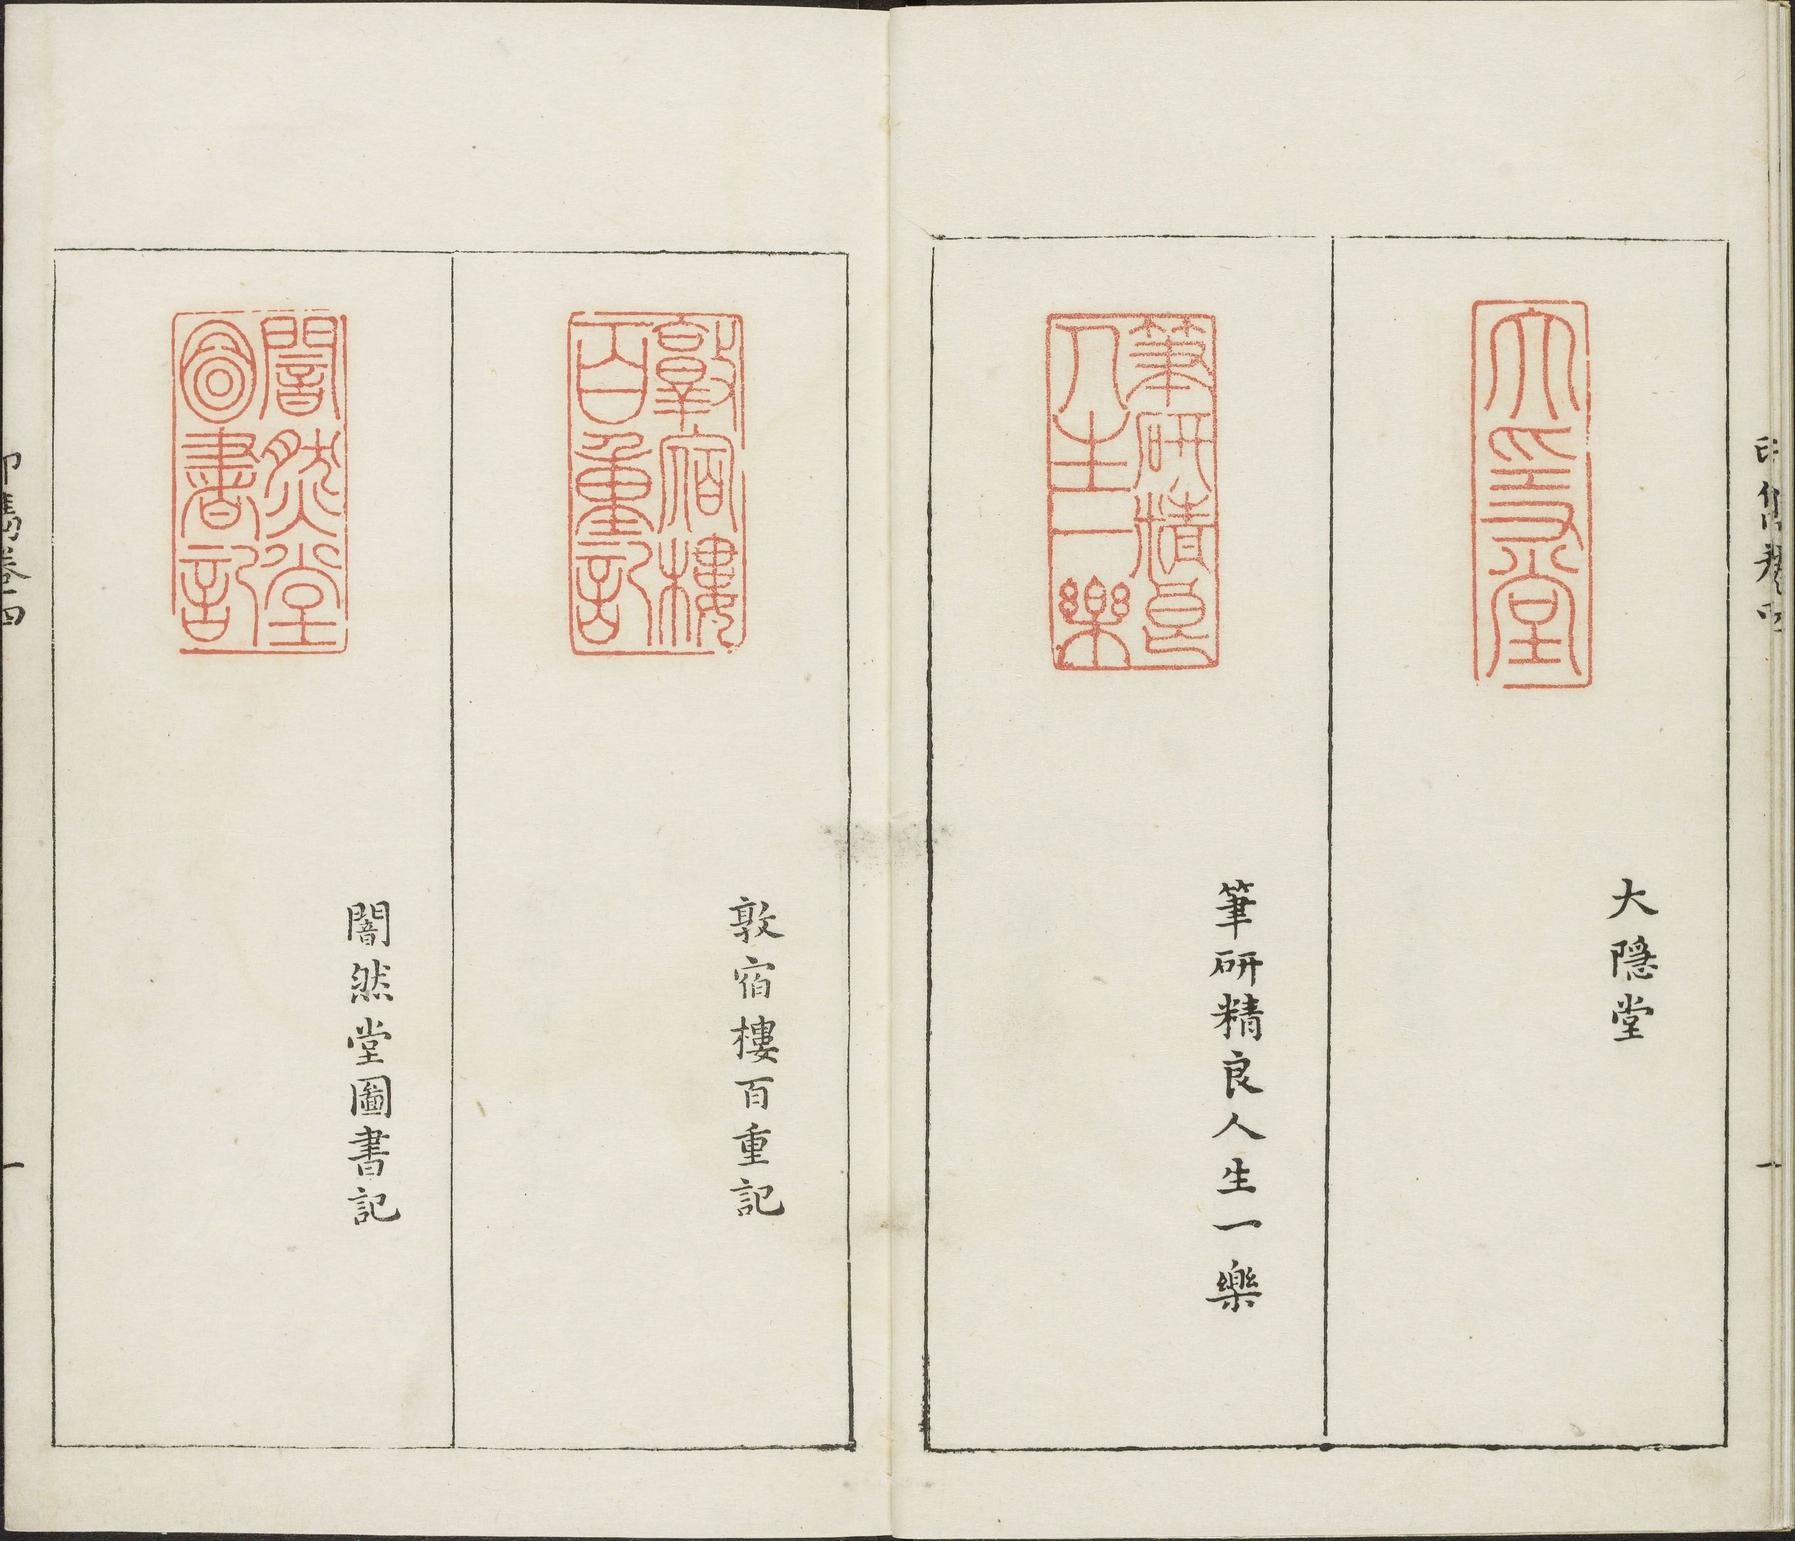 大隱堂
大隱堂
筆研精良
人生一樂
筆研精良人生一樂
敦宿樓
百重記
敦宿樓百重記
闇然堂
圖書記
闇然堂圖書記
印雋卷四
一